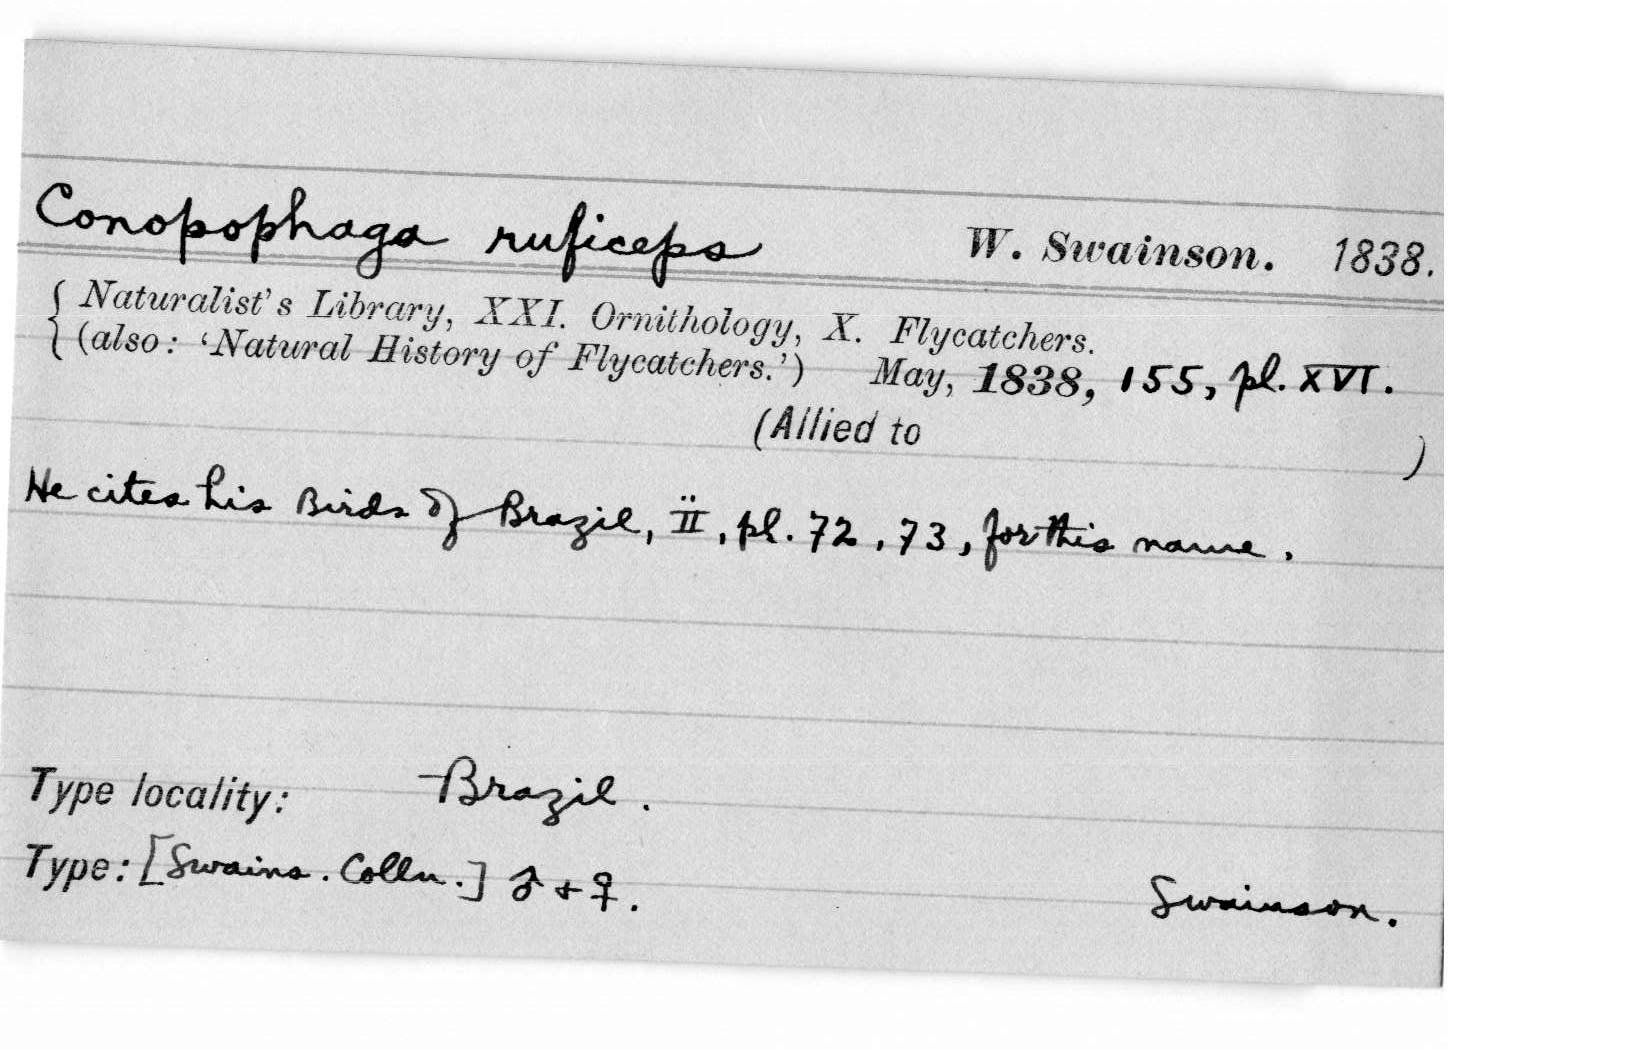 Conopophaga ruficeps W. Swainson. 1838.
{ Naturalist's Library, XXI. Ornithology, X. Flycatchers.
(also: 'Natural History of Flycatchers.') May, 1838, 155, pl. XVI.
(Allied to )
He cites his Birds of Brazil, II, pl. 72, 73, for this name.
Type locality: Brazil.
Type: [Swains. Colln.] ♂ + ♀. Swainson.